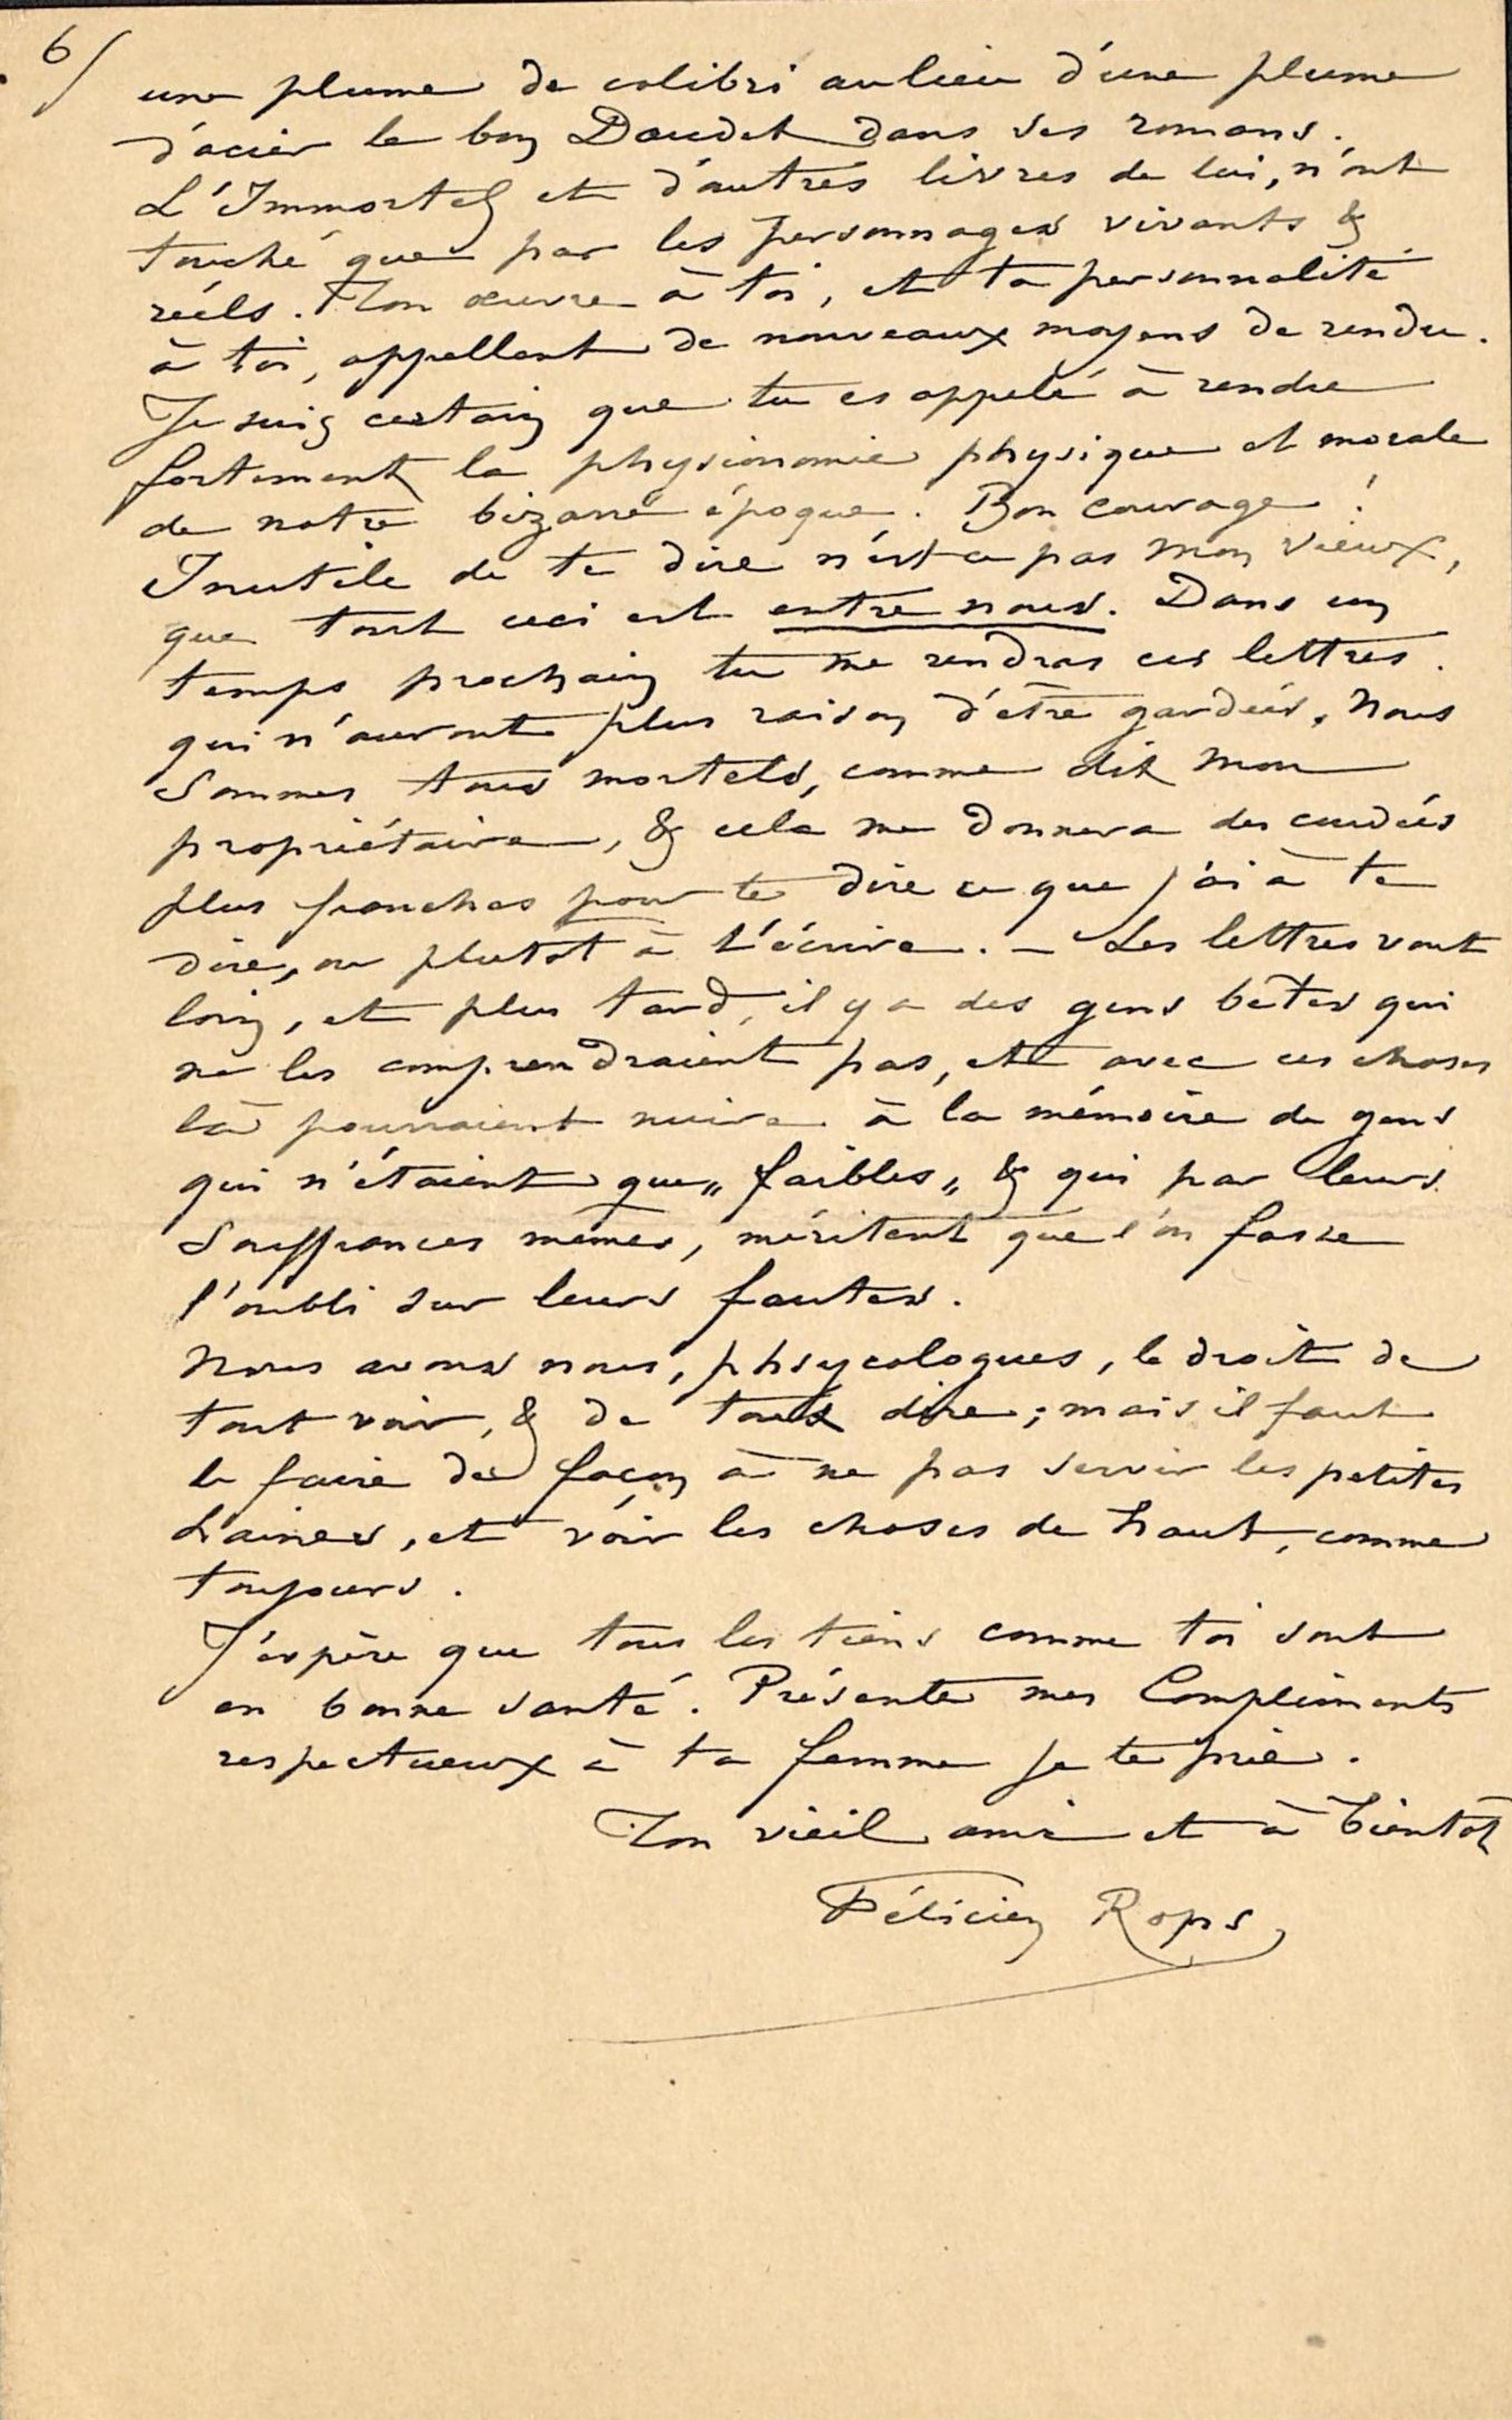 6/
une plume de colibri aulieu d'une plume
d'acier le bon Daudet dans ses romans.
L'Immortel et d'autres livres de lui, n'ont
touché que par les personnages vivants &
réels. Ton œuvre à toi, et ta personnalité
à toi, appellent de nouveaux moyens de rendu.
Je suis certain que tu es appelé à rendre
fortement la physionomie physique et morale
de notre bizarre époque. Bon courage !
Inutile de te dire n'est ce pas mon vieux,
que tout ceci est entre nous. Dans un
temps prochain tu me rendras ces lettres.
qui n'auront plus raison d'être gardées. Nous
sommes tous mortels, comme dit mon
propriétaire, & cela me donnera des coudées
plus franches pour te dire ce que j'ai à te
dire, ou plutôt à t'écrire. – Les lettres vont
loin, et plus tard, il y a des gens bêtes qui
ne les comprendraient pas, et avec ces choses
là pourraient nuire à la mémoire de gens
qui n'étaient que „ faibles „ & qui par leurs
souffrances mêmes, méritent que l'on fasse
l'oubli sur leurs fautes.
Nous avons nous, phsycologues, le droit de
tout voir, & de tout dire ; mais il faut
le faire de façon à ne pas servir les petites
haines, et voir les choses de haut, comme
toujours.
J'espère que tous les tiens comme toi sont
en bonne santé. Présente mes Compliments
respectueux à ta femme je te prie.
Ton vieil ami et à bientôt
Félicien Rops